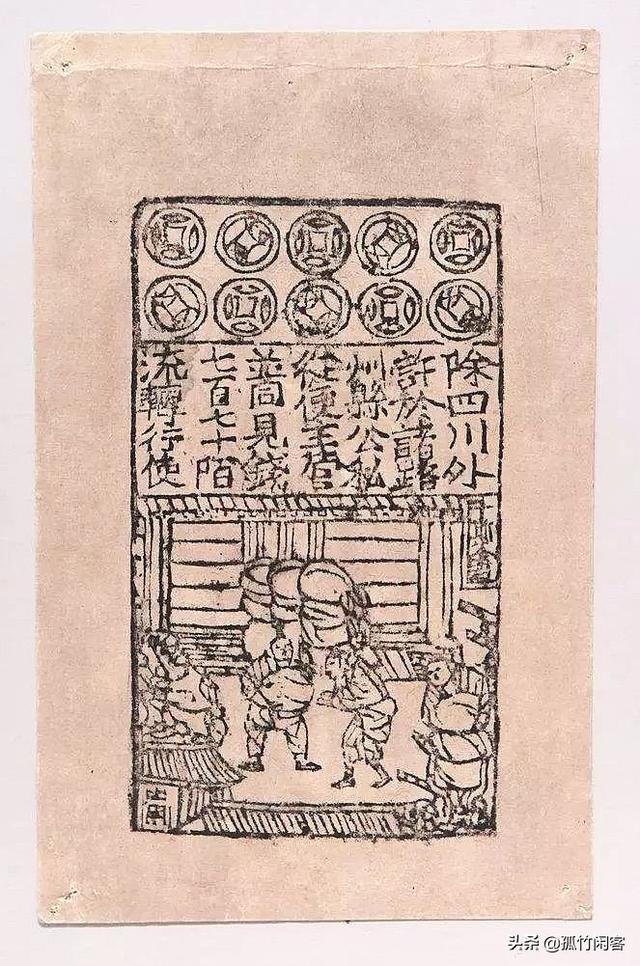 除四川外
許於諸路
州縣公私
從便主管
並同見錢
七百七十陌
流轉行使
头条 @孤竹闲客